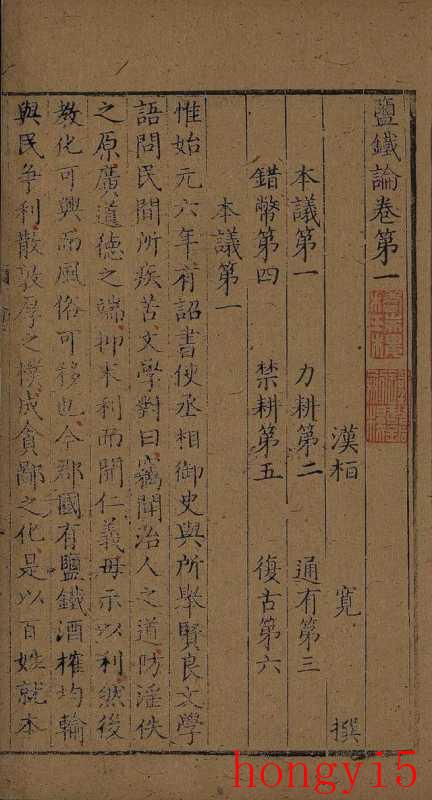 鹽鐵論卷第一
漢桓寬撰
本議第一 力耕第二 通有第三
錯幣第四 禁耕第五 復古第六
本議第一
惟始元六年有詔書使丞相御史與所舉賢良文學
語問民間所疾苦文學對曰竊聞治人之道防淫佚
之原廣道德之端抑末利而開仁義毋示以利然後
教化可興而風俗可移也今郡國有鹽鐵酒榷均輸
與民爭利散敦厚之樸成貪鄙之化是以百姓就本
hongyi5